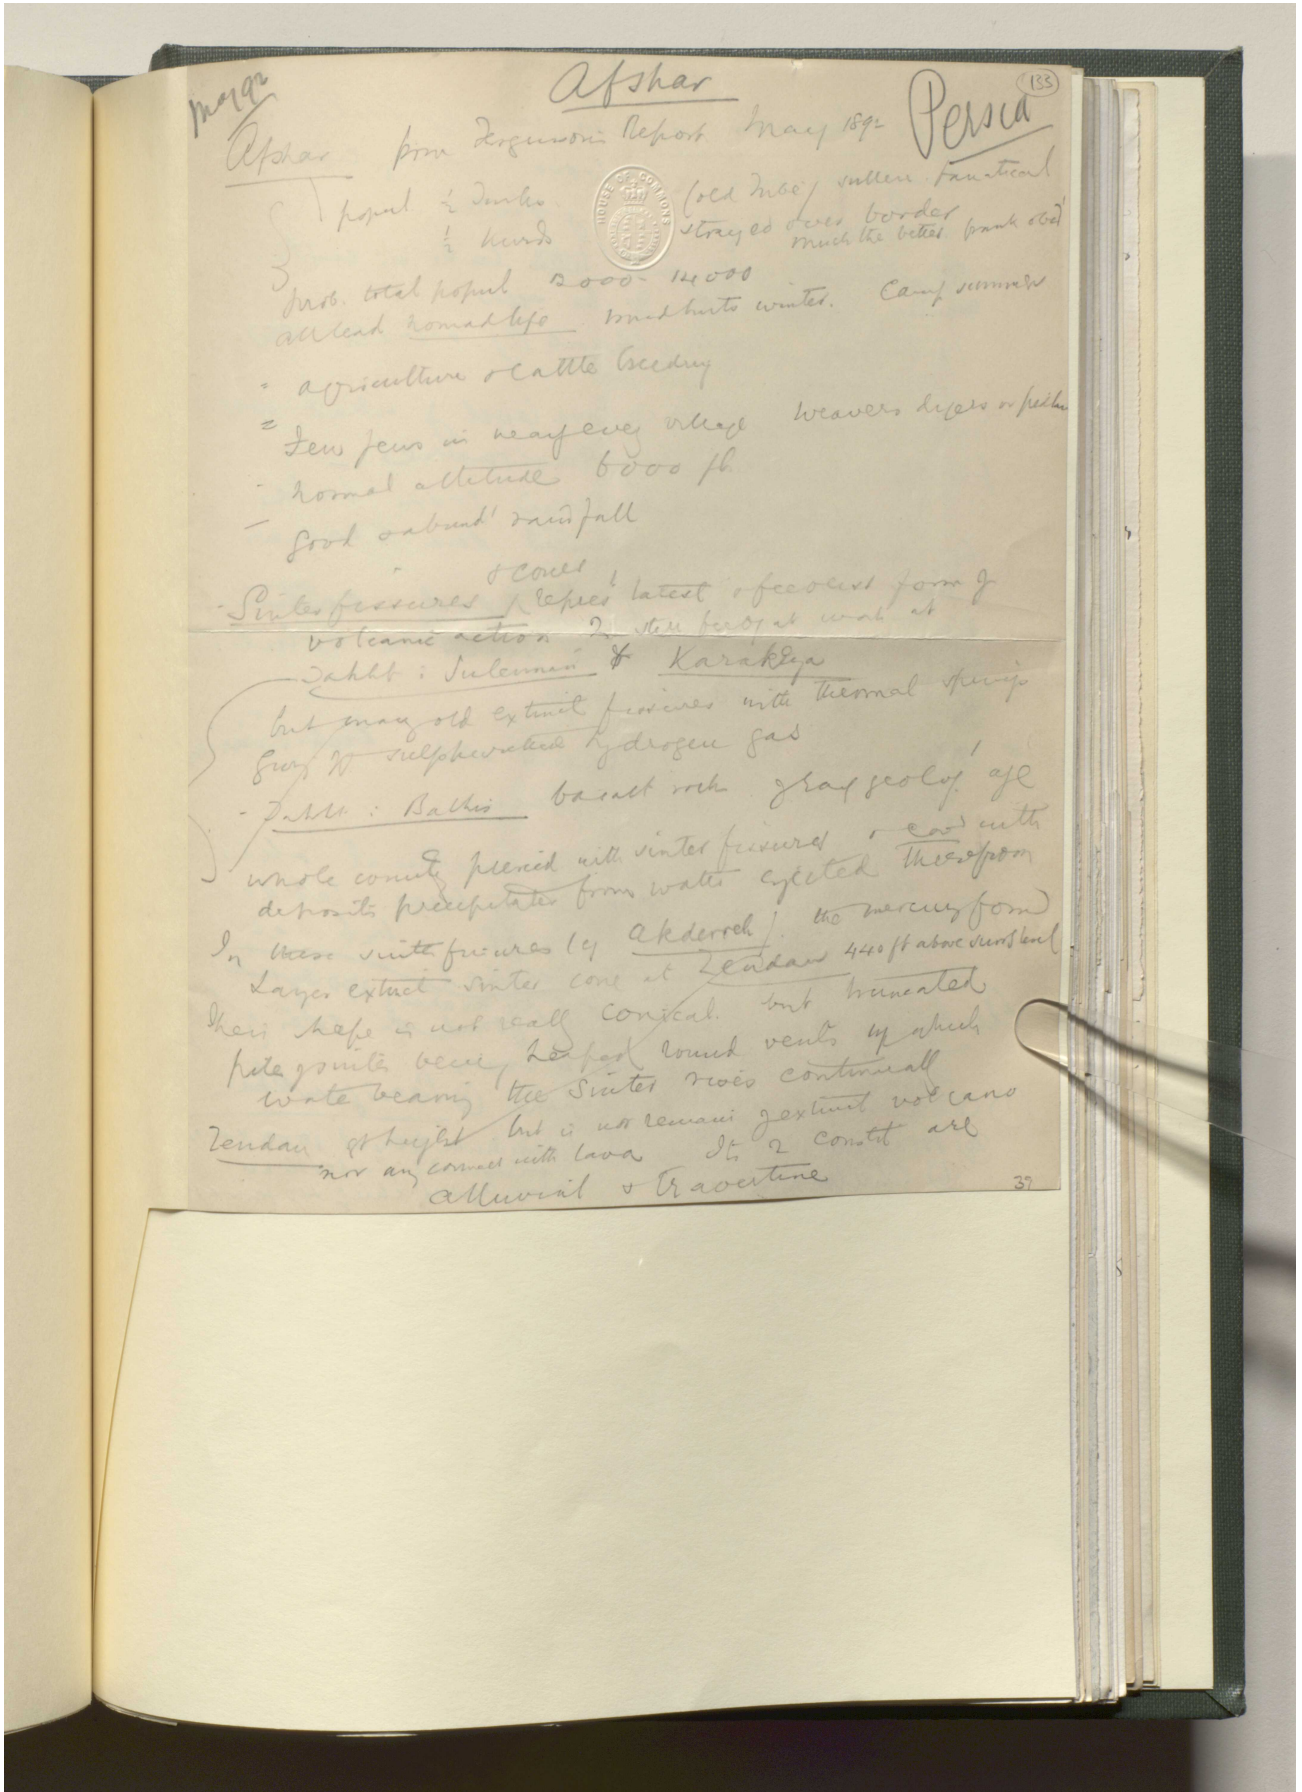 May 92
Afshar
133
Persia
Afshar from Ferguson's Report May 1892
popul ½ Turks (old Tribe) sullen fanatical
½ Kurds strayed over border
much the better frank
HOUSE OF COMMONS
prob. total popul 14000
all lead nomad life mud huts winter. Camp summer
" agriculture & cattle breeding
= Few Jews in nearly every village weavers dyers or
- normal altitude 6000 ft.
- good & abundt rainfall
& cones
- Sinter fissures repres latest & feeblest form of
volcanic action still at work at
Takht i Suleiman & Karakaya
but many old extinct fissures with thermal springs
giving off sulphuretted hydrogen gas
- Takht i Balkis basalt rock geolog age
whole country pierced with sinter fissures & with
deposits precipitated from water ejected therefrom
In these sinter fissures (eg Akdereh) the mercury found
Large extinct sinter cone at Zendan 440 ft above level
Their shape is not really conical but truncated
sinter being heaped round vents up which
water bearing the sinter rises continually
Zendan gt height but is not remains of extinct volcano
nor any connec with lava Its 2 constit are
alluvial & travertine
39